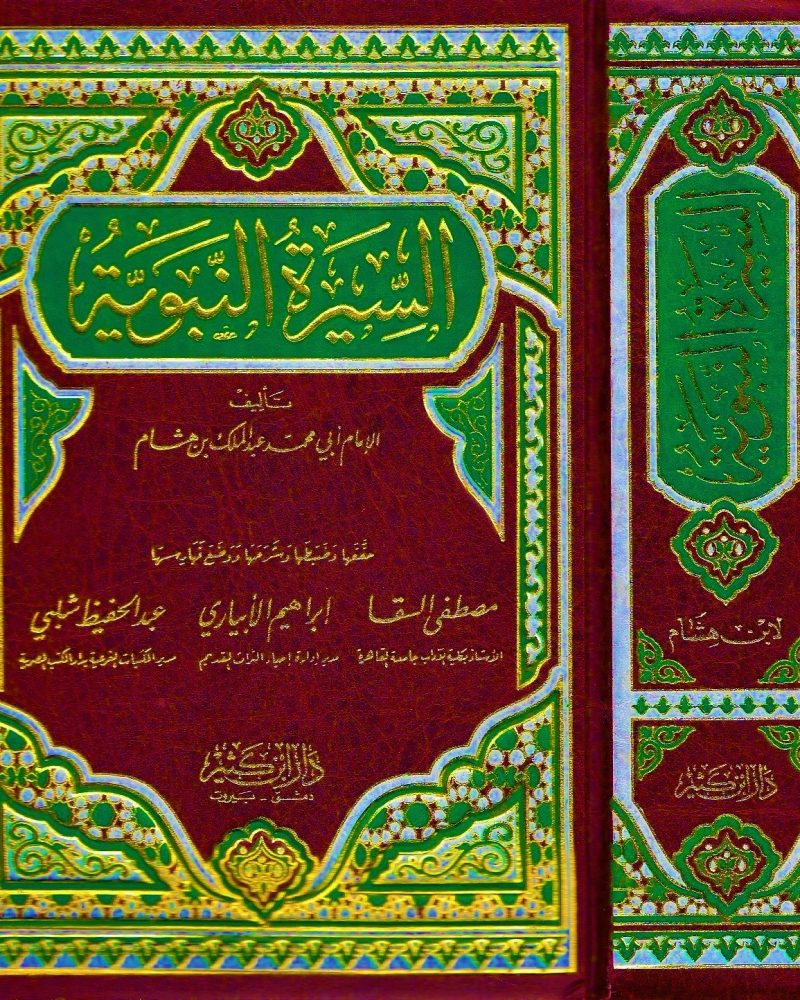 السِّيرَةُ النَّبَوِيَّةُ
تأليف
الإمام أبي محمد عبد الملك بن هشام
حققها وضبطها وشرحها ووضع فهارسها
مصطفى السقا إبراهيم الأبياري عبد الحفيظ شلبي
الأستاذ بكلية الآداب جامعة القاهرة مدير إدارة إحياء التراث القديم مدير المكتبات الفرعية بدار الكتب المصرية
دار ابن كثير
دمشق - بيروت
السيرة النبوية
لابن هشام
دار ابن كثير